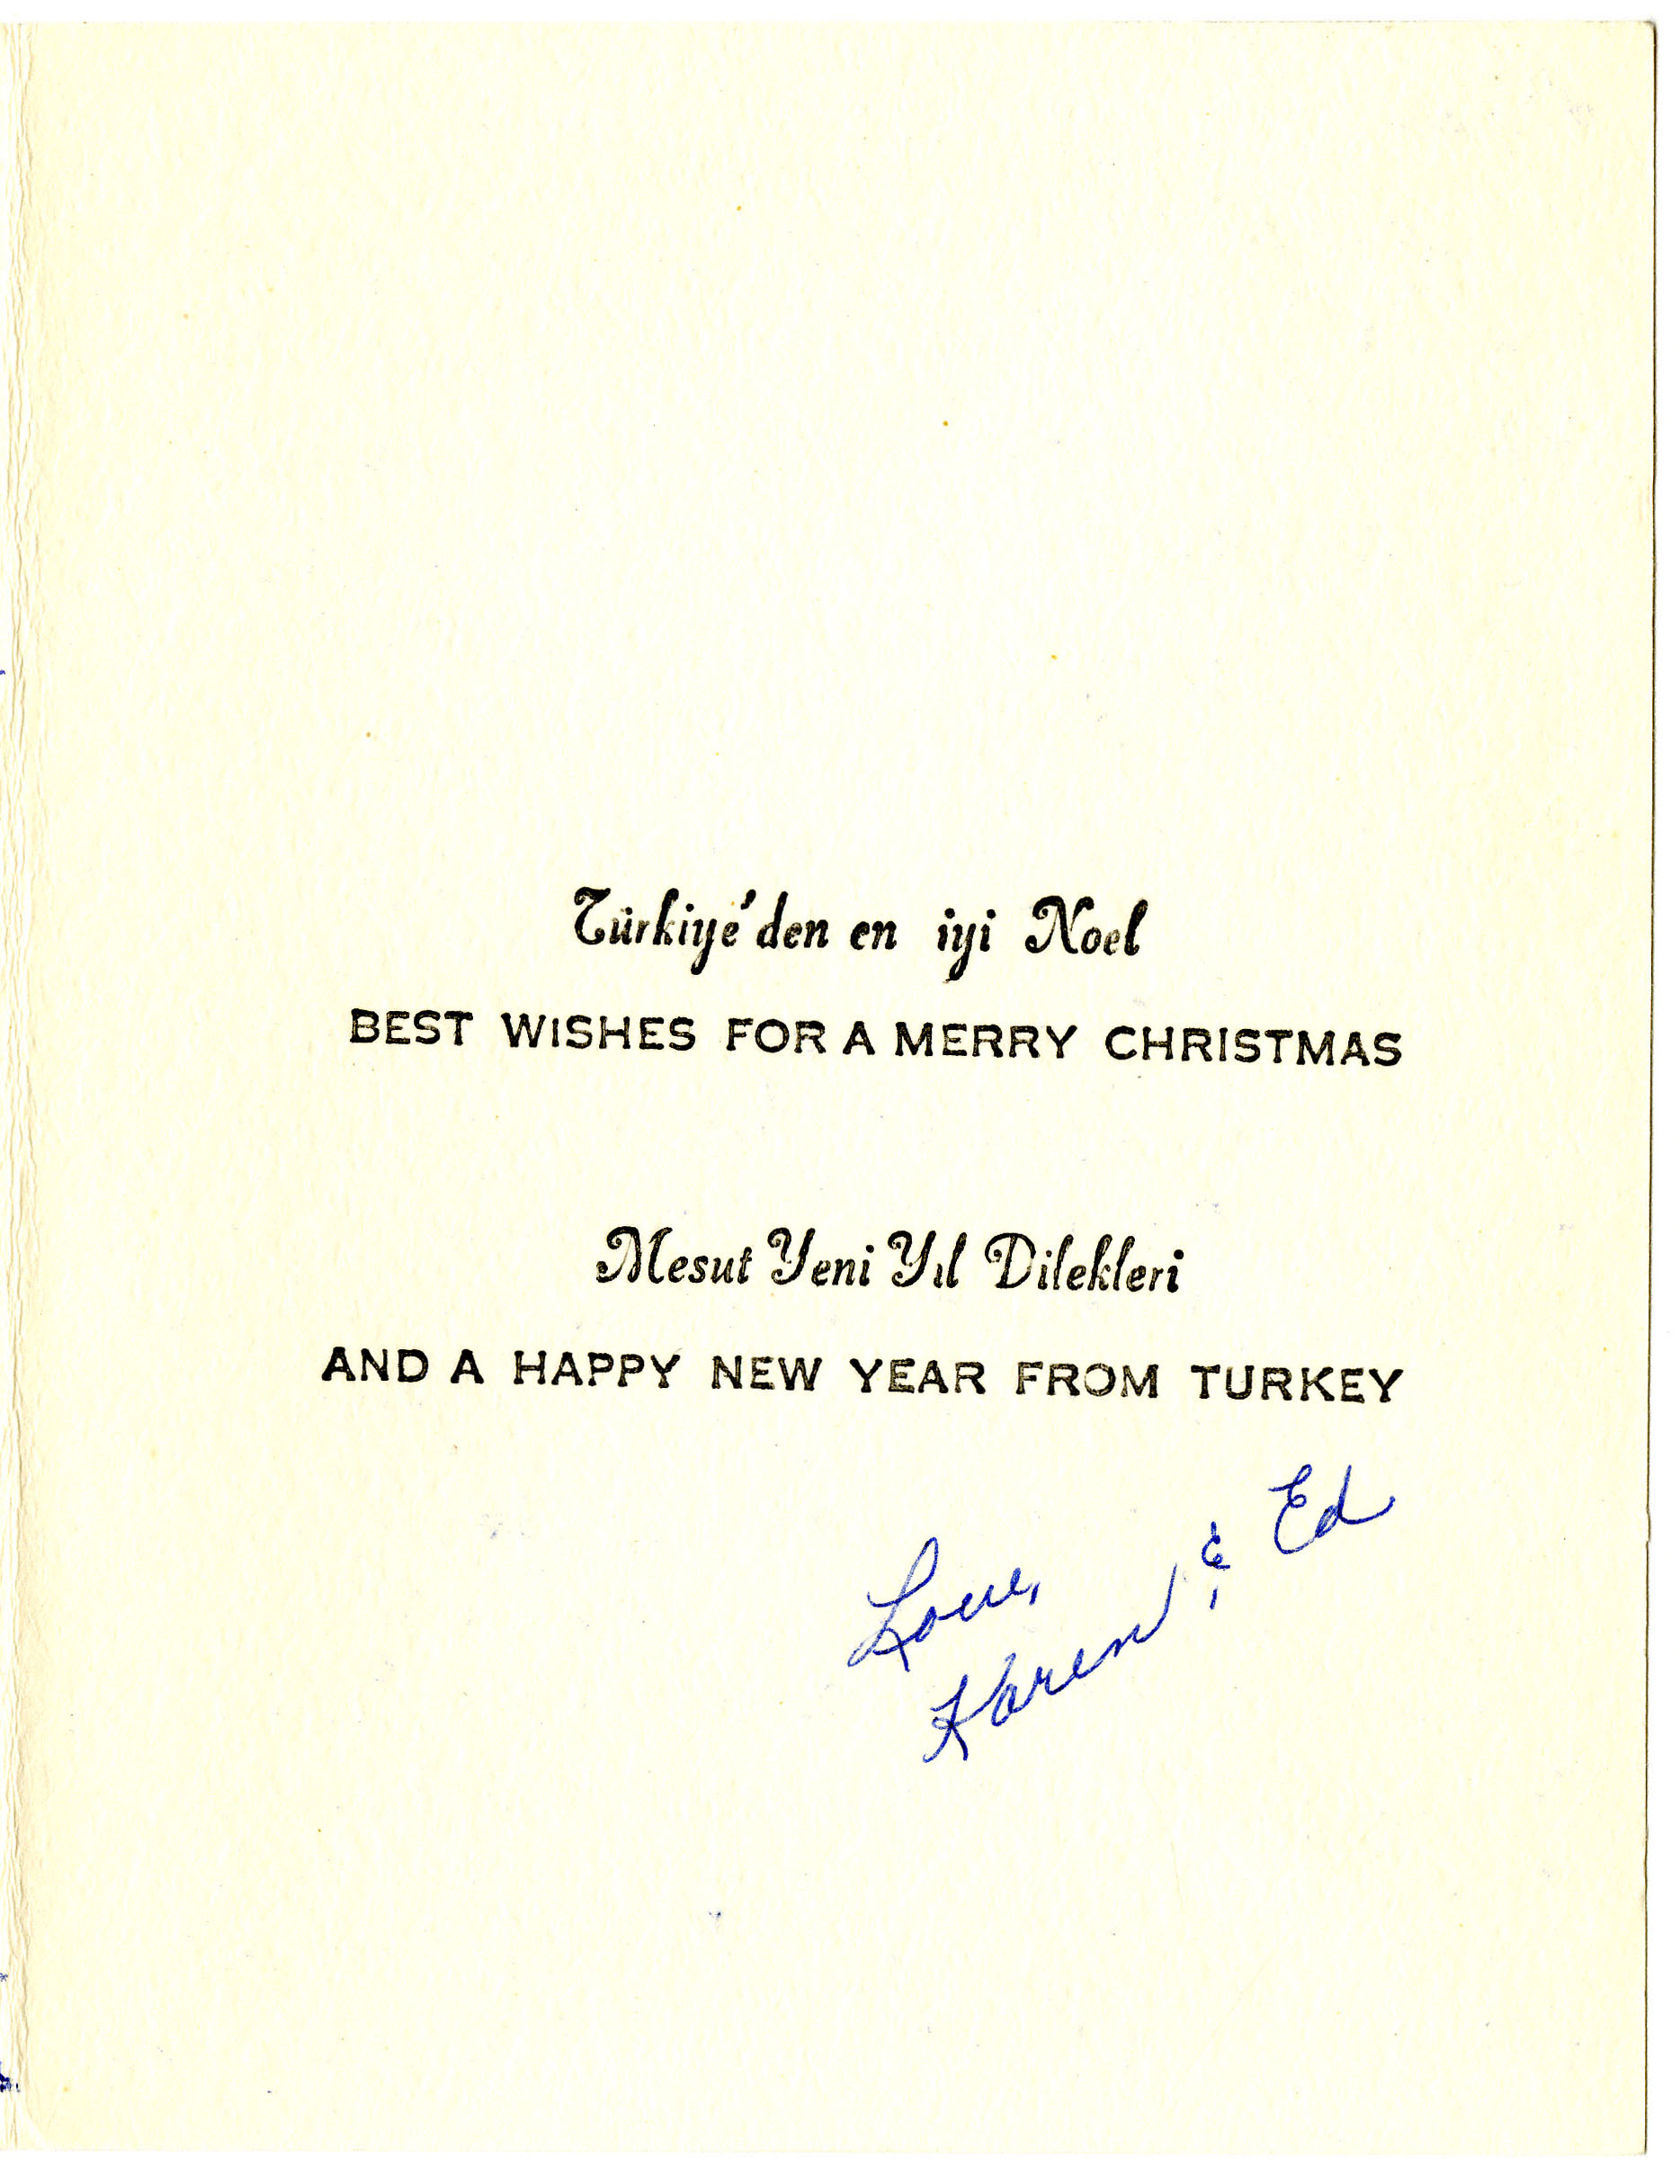 Türkiye'den en iyi Noel
BEST WISHES FOR A MERRY CHRISTMAS
Mesut Yeni Yıl Dilekleri
AND A HAPPY NEW YEAR FROM TURKEY
Love,
Karen & Ed